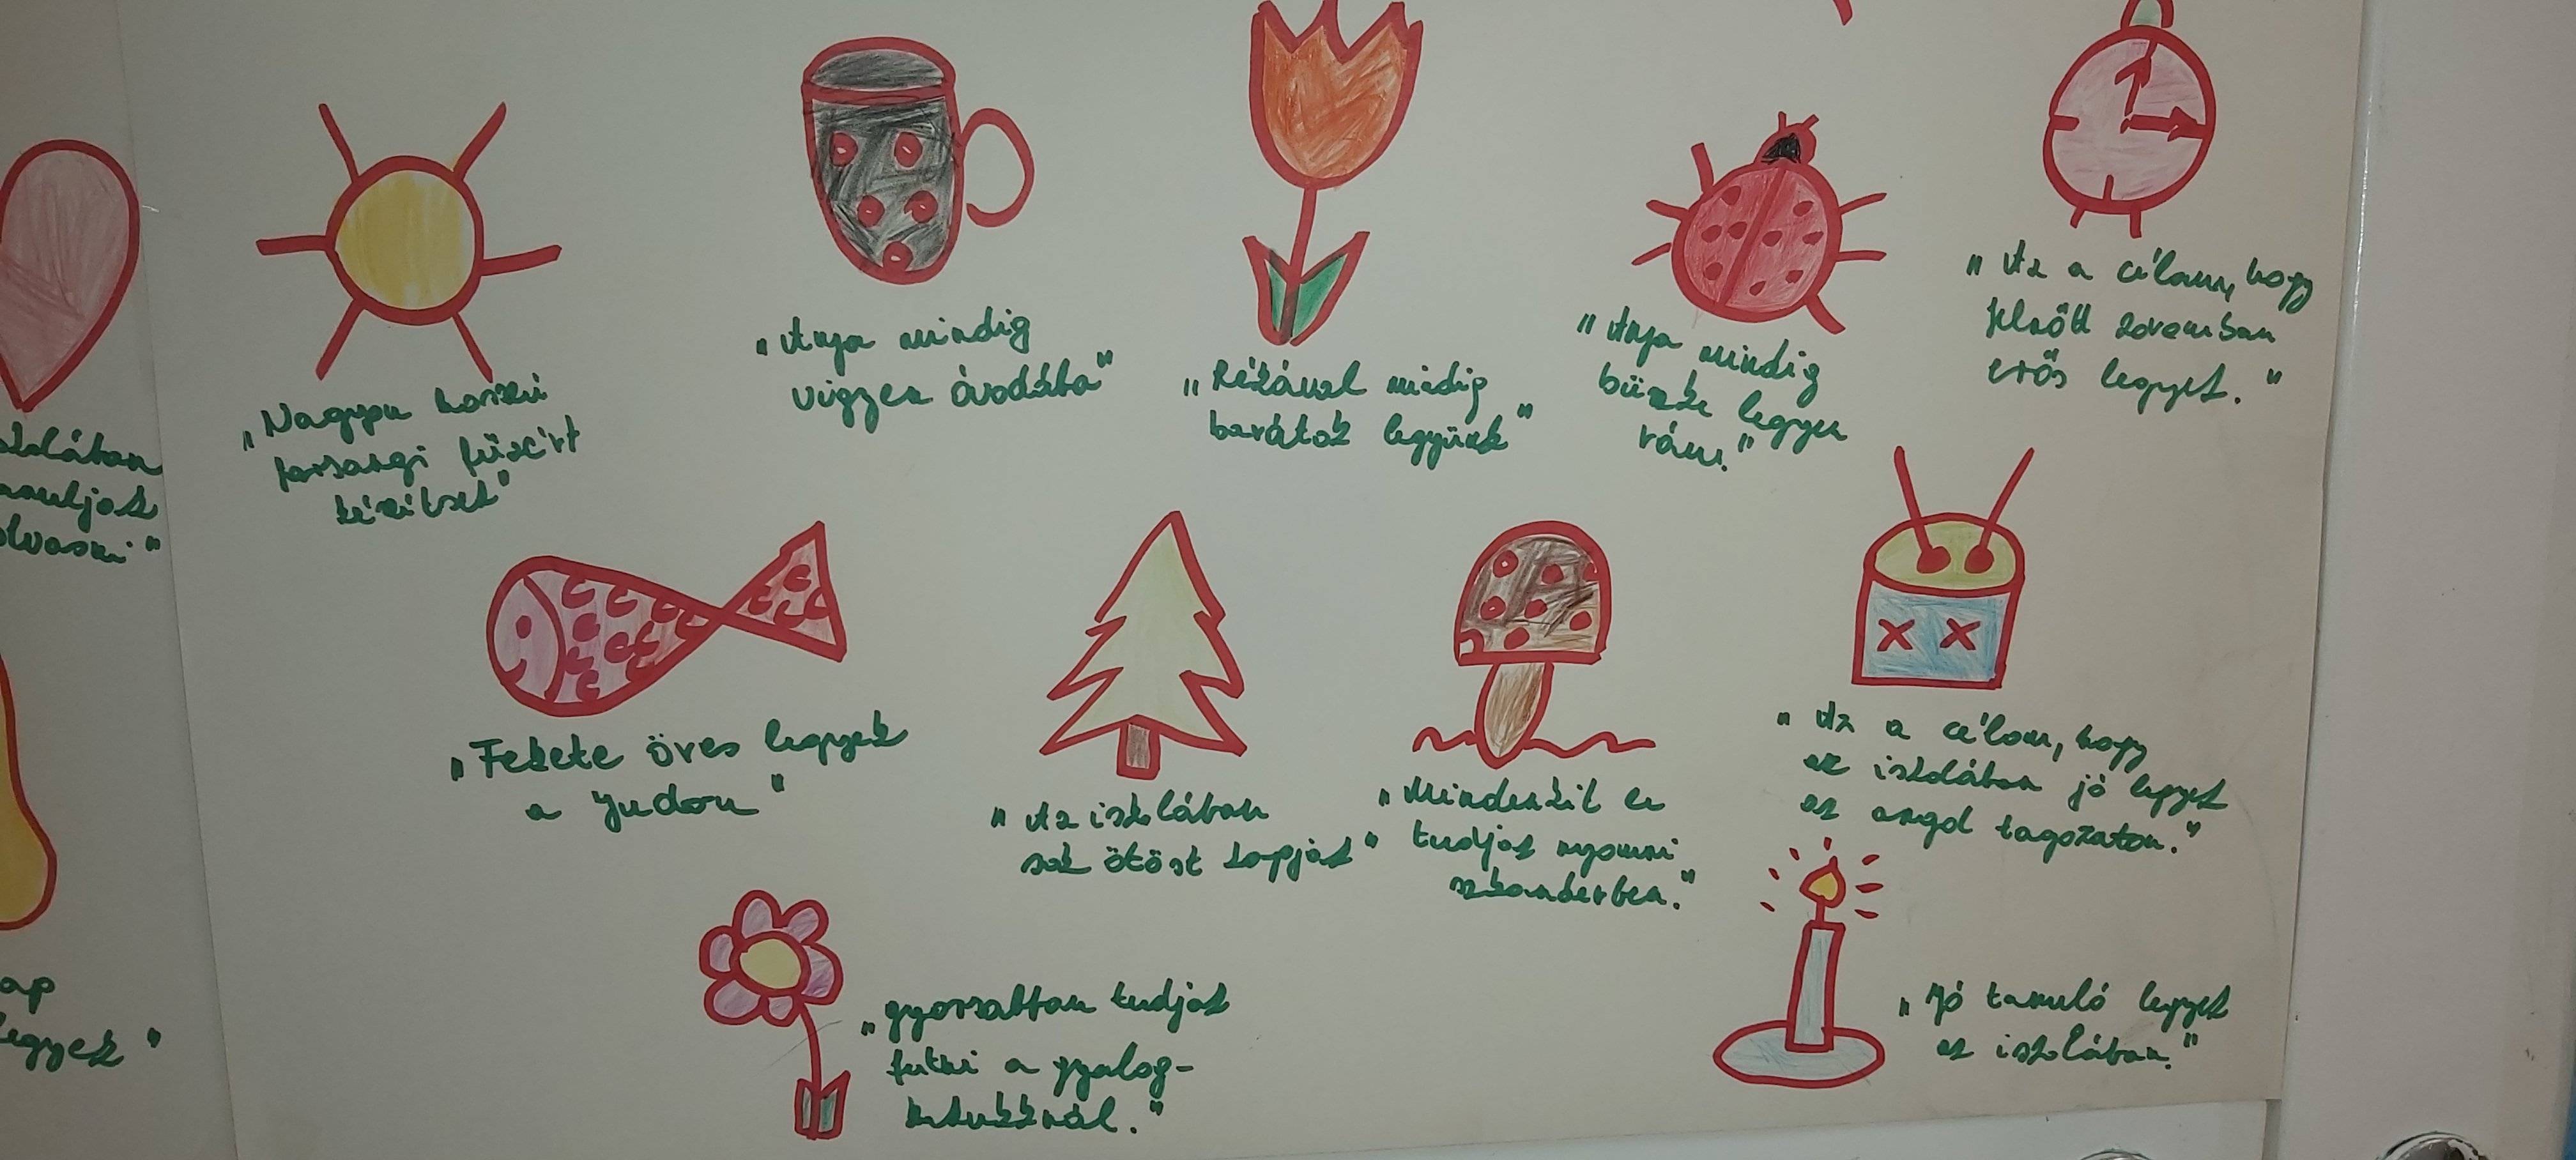 "Nagyon hosszú
farsangi füzért
készítsek"
"Anya mindig
vigyen óvodába"
"Rékával midig
barátok legyünk"
"Anya mindig
büszke legyen
rám."
"Az a célom, hogy
felnőtt koromban
erős legyek."
"Fekete öves legyek
a Judon"
"Az iskolában
sok ötöst kapjak"
"Mindenkit le
tudjak nyomni
szkanderben."
"Az a célom, hogy
az iskolában jó legyek
az angol tagozaton."
"gyorsabban tudjak
futni a gyalog-
kakukknál."
"Jó tanuló legyek
az iskolában."
olvasni"
legyek"